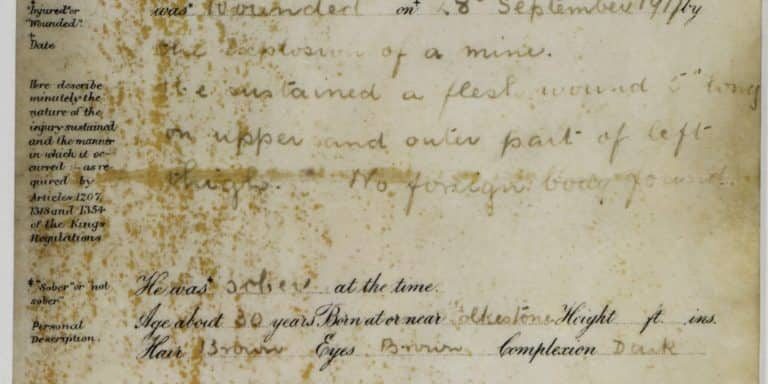 * "Injured" or "Wounded".
† Date
Here describe minutely the nature of the injury sustained and the manner in which it occurred :- as required by Articles 1207, 1318 and 1354 of the Kings Regulations
* "Sober" or not sober"
Personal Description.
was* Wounded on† 28 September 1917 by
the explosion of a mine.
He sustained a flesh wound 5" long
on upper and outer part of left
thigh. No foreign body found.
He was* sober at the time.
Age about 30 years Born at or near Folkestone Height ft. ins.
Hair Brown Eyes Brown Complexion Dark